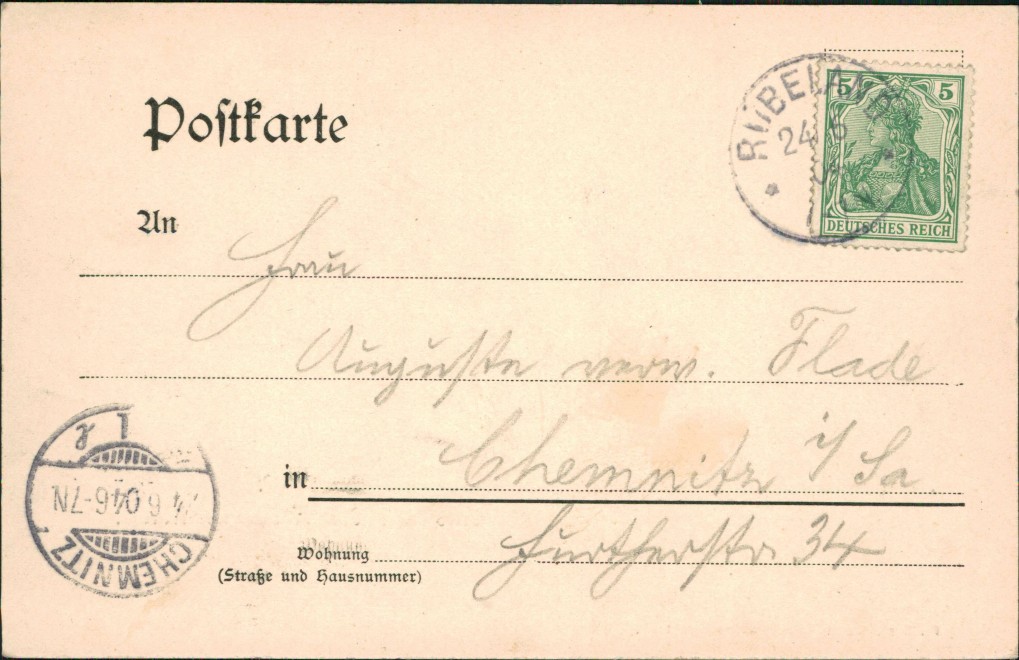 Postkarte
RÜBELAND
24 6
04
5 5
DEUTSCHES REICH
An
Frau
Auguste verw. Flade
in Chemnitz i/Sa.
Wohnung Furtherstr. 34
(Straße und Hausnummer)
CHEMNITZ
24.6.04.6-7N.
1